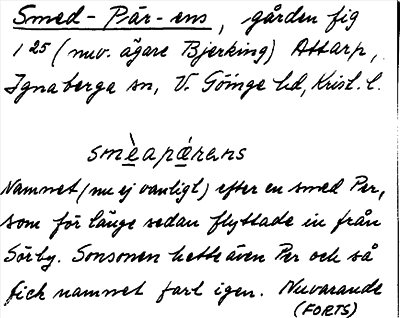 Smed-Pär-ens, gården fig
1 25 (nuv. ägare Bjerking) Attarp,
Ignaberga sn, V. Göinge hd, Krist. l.
smèapǽrens
Namnet (nu ej vanligt) efter en smed Per,
som för länge sedan flyttade in från
Sörby. Sonsonen hette även Per och så
fick namnet fart igen. Nuvarande
(FORTS)